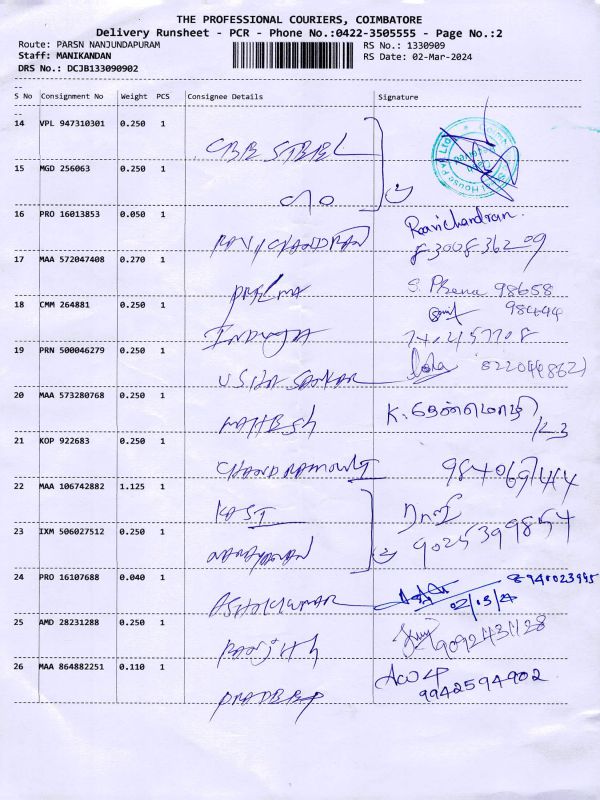 THE PROFESSIONAL COURIERS, COIMBATORE
Delivery Runsheet - PCR - Phone No.:0422-3505555 - Page No.:2
Route: PARSN NANJUNDAPURAM RS No.: 1330909
Staff: MANIKANDAN RS Date: 02-Mar-2024
DRS No.: DCJB133090902
S No Consignment No Weight PCS Consignee Details Signature
14 VPL 947310301 0.250 1
CBE STEEL
15 MGD 256063 0.250 1
C/O
16 PRO 16013853 0.050 1 Ravichandran.
RAVICHANDRAN 8-3008-362-09
17 MAA 572047408 0.270 1 S. Prema 98658
PREMA 98494
18 CMM 264881 0.250 1
INDUJA
19 PRN 500046279 0.250 1
USHA SANKAR
20 MAA 573280768 0.250 1 K. தேன்மொழி
MAHESH
21 KOP 922683 0.250 1
CHANDRAMOULI
22 MAA 106742882 1.125 1
KASI
23 IXM 506027512 0.250 1 9025399854
NARAYANAN
24 PRO 16107688 0.040 1
ASHOKKUMAR 02/03/24
25 AMD 28231288 0.250 1 9092431128
RANJITH
26 MAA 864882251 0.110 1
PRADEEP 9942594902